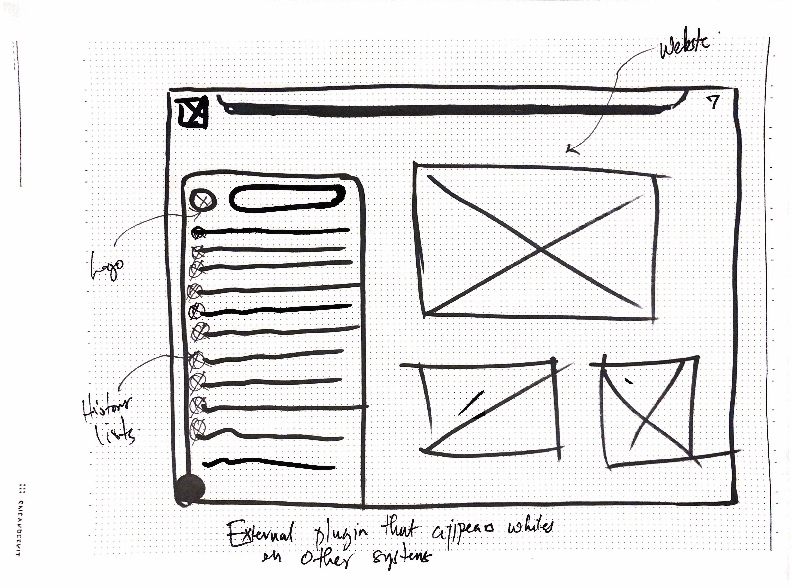 Website
7
Logo
History
lists
External plugin that appears whiles
on other systems